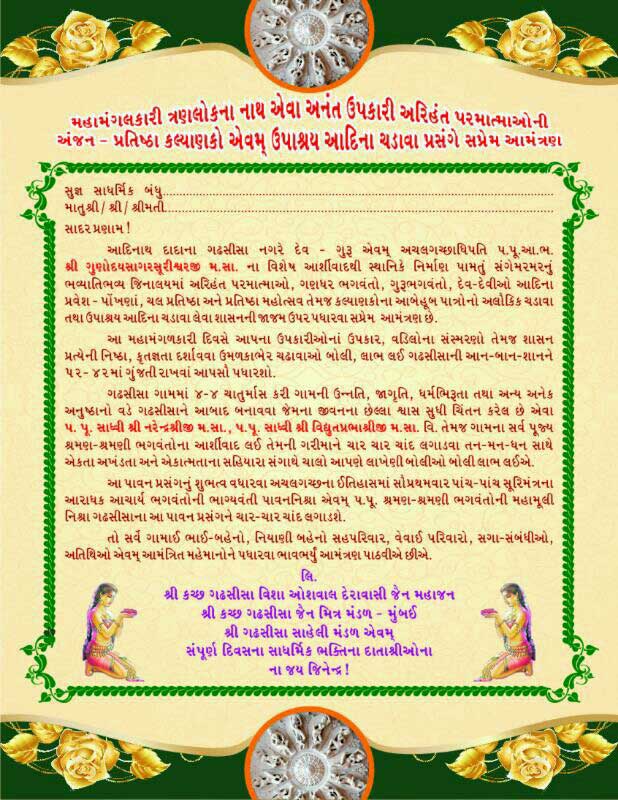 મહામંગલકારી ત્રણલોકના નાથ એવા અનંત ઉપકારી અરિહંત પરમાત્માઓની
અંજન – પ્રતિષ્ઠા કલ્યાણકો એવમ્ ઉપાશ્રય આદિના ચડાવા પ્રસંગે સપ્રેમ આમંત્રણ
સુજ્ઞ સાધર્મિક બંધુ
માતુશ્રી/ શ્રી/ શ્રીમતી
સાદર પ્રણામ !
આદિનાથ દાદાના ગઢસીસા નગરે દેવ - ગુરૂ એવમ્ અચલગચ્છાધિપતિ પ.પૂ.આ.ભ.
શ્રી ગુણોદયસાગરસૂરીશ્વરજી મ.સા. ના વિશેષ આર્શીવાદથી સ્થાનિકે નિર્માણ પામતું સંગેમરમરનું
ભવ્યાતિભવ્ય જિનાલયમાં અરિહંત પરમાત્માઓ, ગણધર ભગવંતો, ગુરૂભગવંતો, દેવ-દેવીઓ આદિના
પ્રવેશ - પોંખણાં, ચલ પ્રતિષ્ઠા અને પ્રતિષ્ઠા મહોત્સવ તેમજ કલ્યાણકોના આબેહૂબ પાત્રોનો અલૌકિક ચડાવા
તથા ઉપાશ્રય આદિના ચડાવા લેવા શાસનની જાજમ ઉપર પધારવા સપ્રેમ આમંત્રણ છે.
આ મહામંગળકારી દિવસે આપના ઉપકારીઓનાં ઉપકાર, વડિલોના સંસ્મરણો તેમજ શાસન
પ્રત્યેની નિષ્ઠા, કૃતજ્ઞતા દર્શાવવા ઉમળકાભેર ચઢાવાઓ બોલી, લાભ લઈ ગઢસીસાની આન-બાન-શાનને
૫૨- ૪૨માં ગુંજતી રાખવાં આપસૌ પધારશો.
ગઢસીસા ગામમાં ૪-૪ ચાતુર્માસ કરી ગામની ઉન્નતિ, જાગૃતિ, ધર્મભિરૂતા તથા અન્ય અનેક
અનુષ્ઠાનો વડે ગઢસીસાને આબાદ બનાવવા જેમના જીવનના છેલ્લા શ્વાસ સુધી ચિંતન કરેલ છે એવા
પ. પૂ. સાધ્વી શ્રી નરેન્દ્રશ્રીજી મ.સા., પ.પૂ. સાધ્વી શ્રી વિદ્યુતપ્રભાશ્રીજી મ.સા. વિ. તેમજ ગામના સર્વ પૂજ્ય
શ્રમણ-શ્રમણી ભગવંતોના આર્શીવાદ લઈ તેમની ગરીમાને ચાર ચાર ચાંદ લગાડવા તન-મન-ધન સાથે
એકતા અખંડતા અને એકાત્મતાના સહિયારા સંગાથે ચાલો આપણે લાખેણી બોલીઓ બોલી લાભ લઈએ.
આ પાવન પ્રસંગનું શુભત્વ વધારવા અચલગચ્છના ઈતિહાસમાં સૌપ્રથમવાર પાંચ-પાંચ સૂરિમંત્રના
આરાધક આચાર્ય ભગવંતોની ભાગ્યવંતી પાવનનિશ્રા એવમ્ પ.પૂ. શ્રમણ-શ્રમણી ભગવંતોની મહામૂલી
નિશ્રા ગઢસીસાના આ પાવન પ્રસંગને ચાર-ચાર ચાંદ લગાડશે.
તો સર્વે ગામાઈ ભાઈ-બહેનો, નિયાણી બહેનો સહપરિવાર, વેવાઈ પરિવારો, સગા-સંબંધીઓ,
અતિથિઓ એવમ્ આમંત્રિત મહેમાનોને પધારવા ભાવભર્યું આમંત્રણ પાઠવીએ છીએ.
લિ.
શ્રી કચ્છ ગઢસીસા વિશા ઓશવાલ દેરાવાસી જૈન મહાજન
શ્રી કચ્છ ગઢસીસા જૈન મિત્ર મંડળ - મુંબઈ
શ્રી ગઢસીસા સાહેલી મંડળ એવમ્
સંપૂર્ણ દિવસના સાધર્મિક ભક્તિના દાતાશ્રીઓના
ના જય જિનેન્દ્ર !